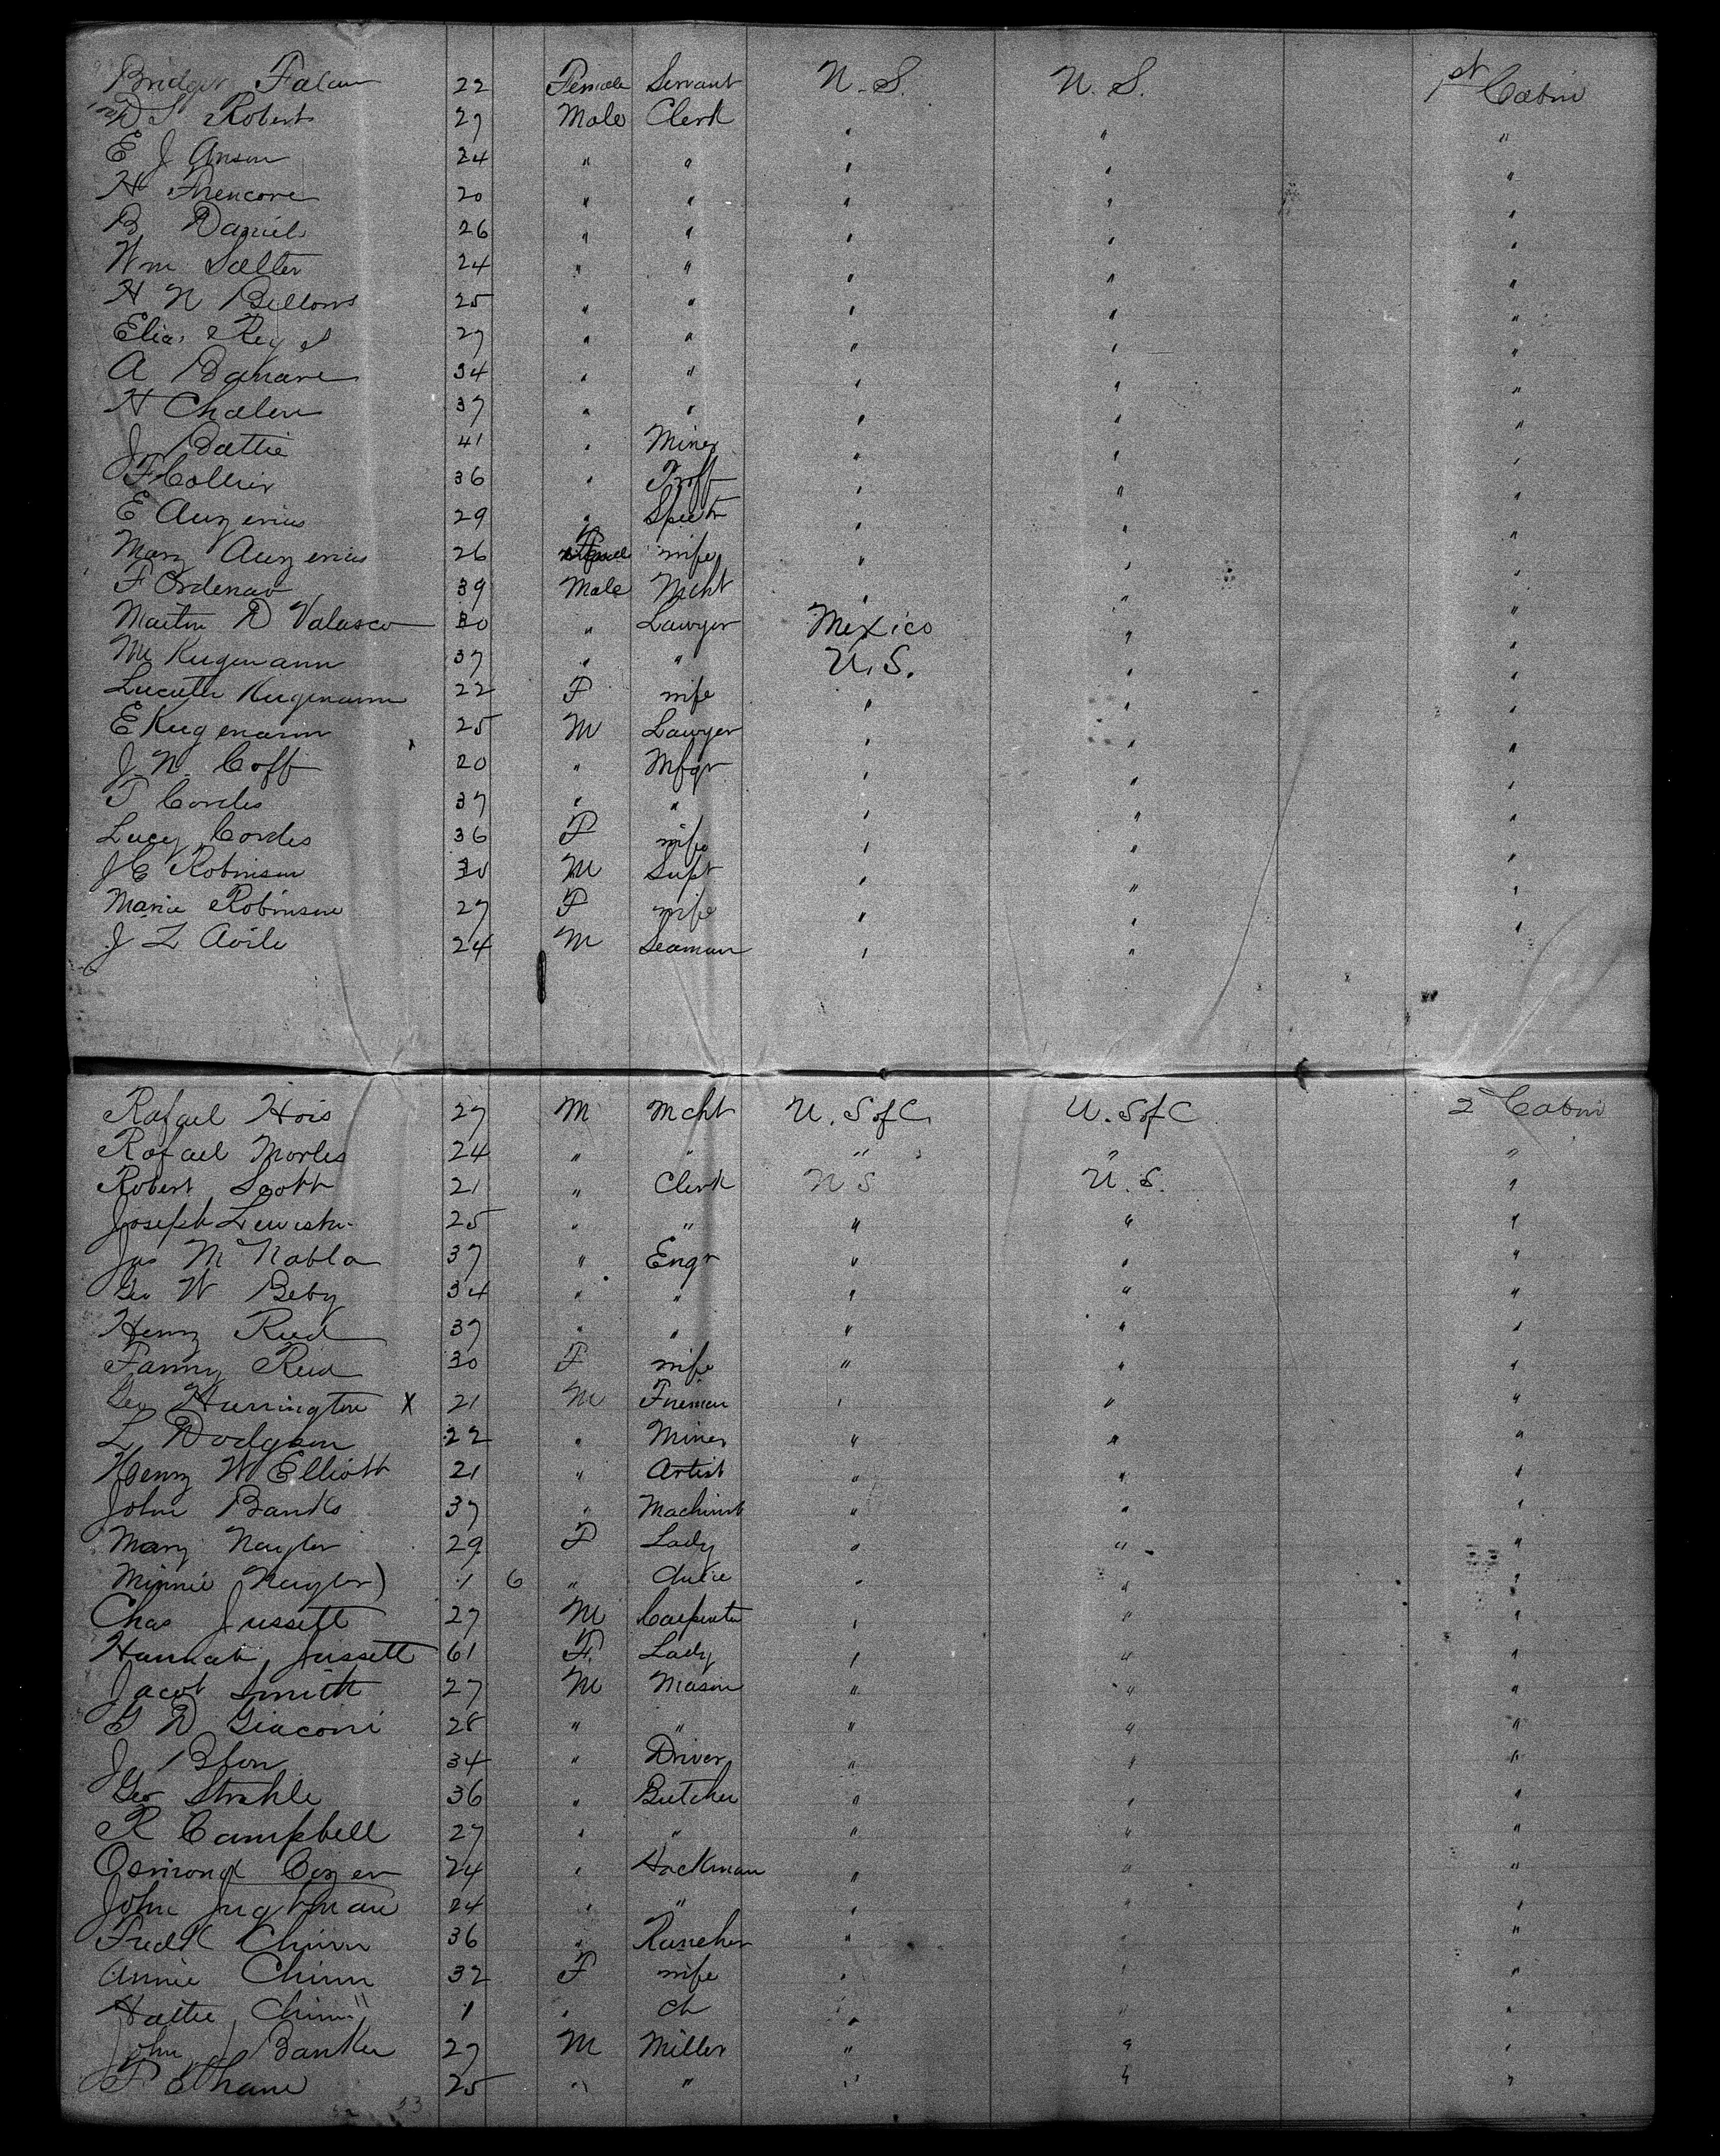 Bridget Falan 22 Female Servant U.S. U.S. 1st Cabin
D S Robert 27 Male Clerk " " "
E J Anson 24 " " " " "
H 20 " " " " "
B Daniels 26 " " " " "
Wm Salter 24 " " " " "
H N Bellows 25 " " " " "
Elias Rey 27 " " " " "
A 34 " " " " "
H Chalen 37 " " " " "
J Battie 41 " Miner " " "
F Collier 36 " Proff " " "
E Auzerius 29 " " " "
Mary Auzerius 26 wife " " "
F Ordenav 39 Male Mcht " " "
Martin D Valasco 30 " Lawyer Mexico " "
M Kugemann 37 " " U.S. " "
Kugemann 22 F wife " " "
E Kugemann 25 M Lawyer " " "
J. N. Coff 20 " Mfgr " " "
T Cordes 37 " " " " "
Lucy Cordes 36 F wife " " "
J C Robinson 30 M Supt " " "
Marie Robinson 27 F wife " " "
J L Avile 24 M Seaman " "
Rafael Hois 27 M Mcht U. S of C. U. S of C 2 Cabin
Rafael Morles 24 " " " " "
Robert Scott 21 " Clerk U S U. S. "
Joseph 25 " " " " "
Jas McNabla 37 " Engr " " "
Geo W Beby 34 " " " " "
Henry Reed 37 " " " " "
Fanny Reid 30 F wife " " "
Geo Hurrington X 21 M Fireman " " "
L Dodgson 22 " Miner " " "
Henry W Elliott 21 " Artist " " "
John Banks 37 " Machinist " " "
Mary Naylor 29 F Lady " " "
Minnie Naylor) 1 6 " " " "
Chas Jussett 27 M Carpenter " " "
Hannah Jussett 61 F. Lady " " "
Jacob Smith 27 M Mason " " "
G D Giaconi 28 " " " " "
J Blon 34 " Driver " " "
Geo Strahle 36 " Butcher " " "
R Campbell 27 " " " " "
Osmond 24 " Hackman " " "
John 24 " " " " "
Fredk Chinn 36 " Rancher " " "
Annie Chinn 32 F wife " " "
Hattie Chinn " 1 " ch " " "
John J Banker 27 M Miller " " "
P 25 " " " " "